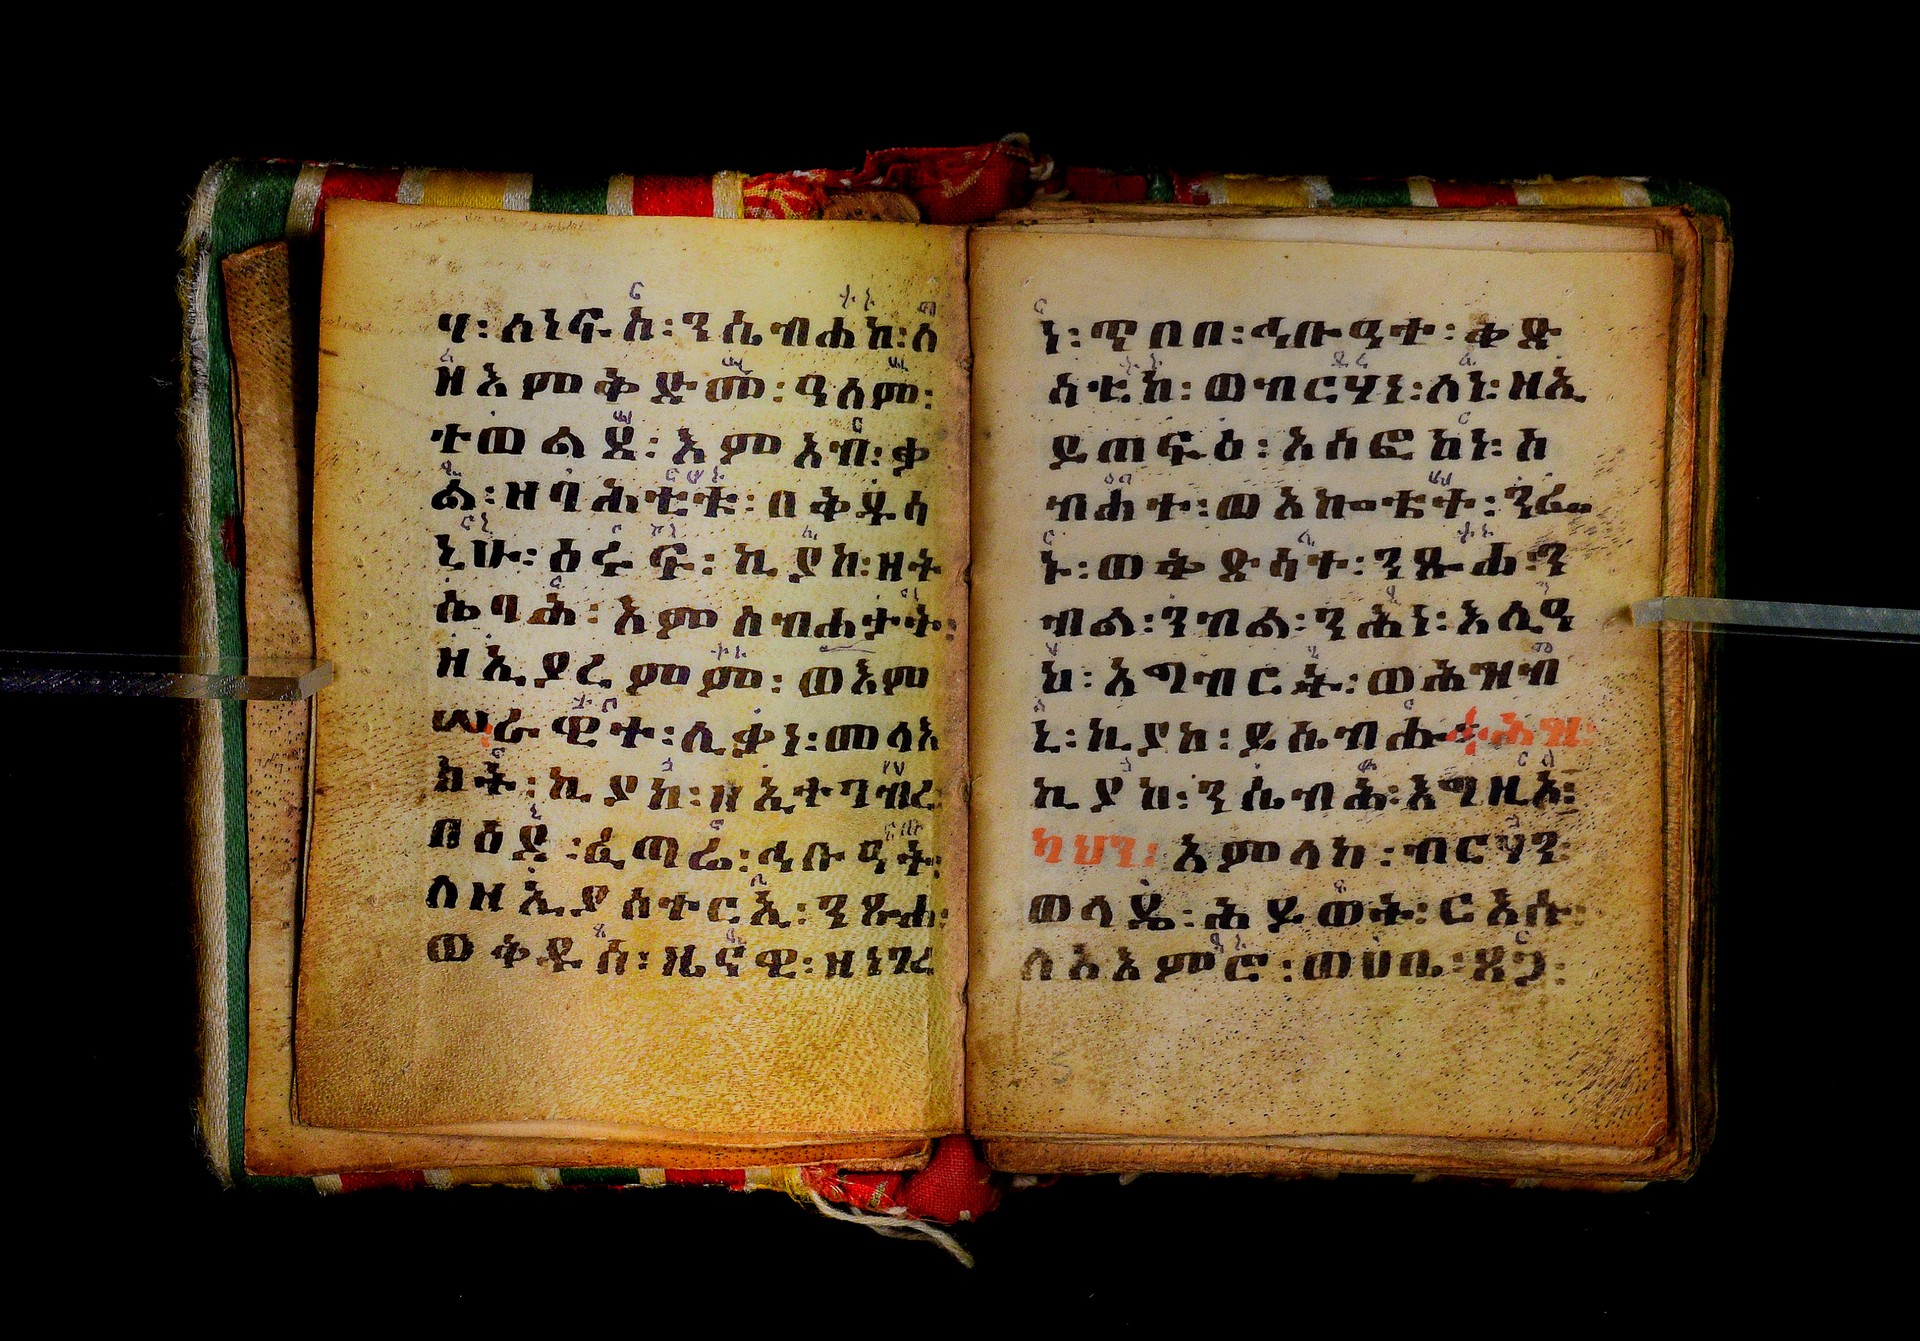 ሃ፡ ለነፍስ፡ ንሴብሐከ፡ ለ
ዘእምቅድመ፡ ዓለም፡
ተወልደ፡ እምአብ፡ ቃ
ል፡ ዘባሕቲቱ፡ በቅዱሳ
ኒሁ፡ ዕሩፍ፡ ኪያከ፡ ዘት
ሴባሕ፡ እምስብሐታት፡
ዘኢያረምም፡ ወእም
ሠራዊተ፡ ሊቃነ፡ መላእ
ክት፡ ኪያከ፡ ዘኢተገብረ
በዕደ፡ ፈጣሪ፡ ኅቡዓት፡
ለዘኢያስተርኢ፡ ንጹሐ፡
ወቅዱስ፡ ዜናዊ፡ ዘነገረ
ነ፡ ጥበበ፡ ኅቡዓተ፡ ቅድ
ሳቲከ፡ ወብርሃነ፡ ለነ፡ ዘኢ
ይጠፍዕ፡ አሰፎ ከነ፡ ስ
ብሐተ፡ ወአኰቴተ፡ ንፌኑ
ነ፡ ወቅድሳተ፡ ንጹሐ፡ ን
ብል፡ ንብል፡ ንሕነ፡ እሊዓ
ከ፡ አግብርት፡ ወሕዝብ
ኒ፡ ኪያከ፡ ይሴብሑ ፡ ሕዝ፡
ኪያከ፡ ንሴብሕ፡ እግዚአ፡
ካህን፡ አምላክ፡ ብርሃን፡
ወላዴ፡ ሕይወት፡ ርእሱ፡
ለአእምሮ፡ ወሀቤ፡ ጸጋ፡